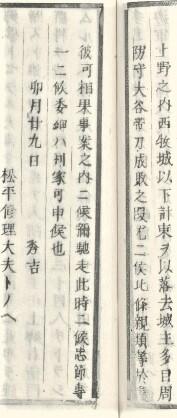 上野之内西牧城以下計策ヲ以落去城主多目周
防守大谷帯刀成敗之段尤二候此條親類等於有
彼可相果事案之内二候彌馳走此時二候忠節専
一二候委細ハ利家可申候也
卯月廿九日　秀吉
松平修理大夫トノヘ